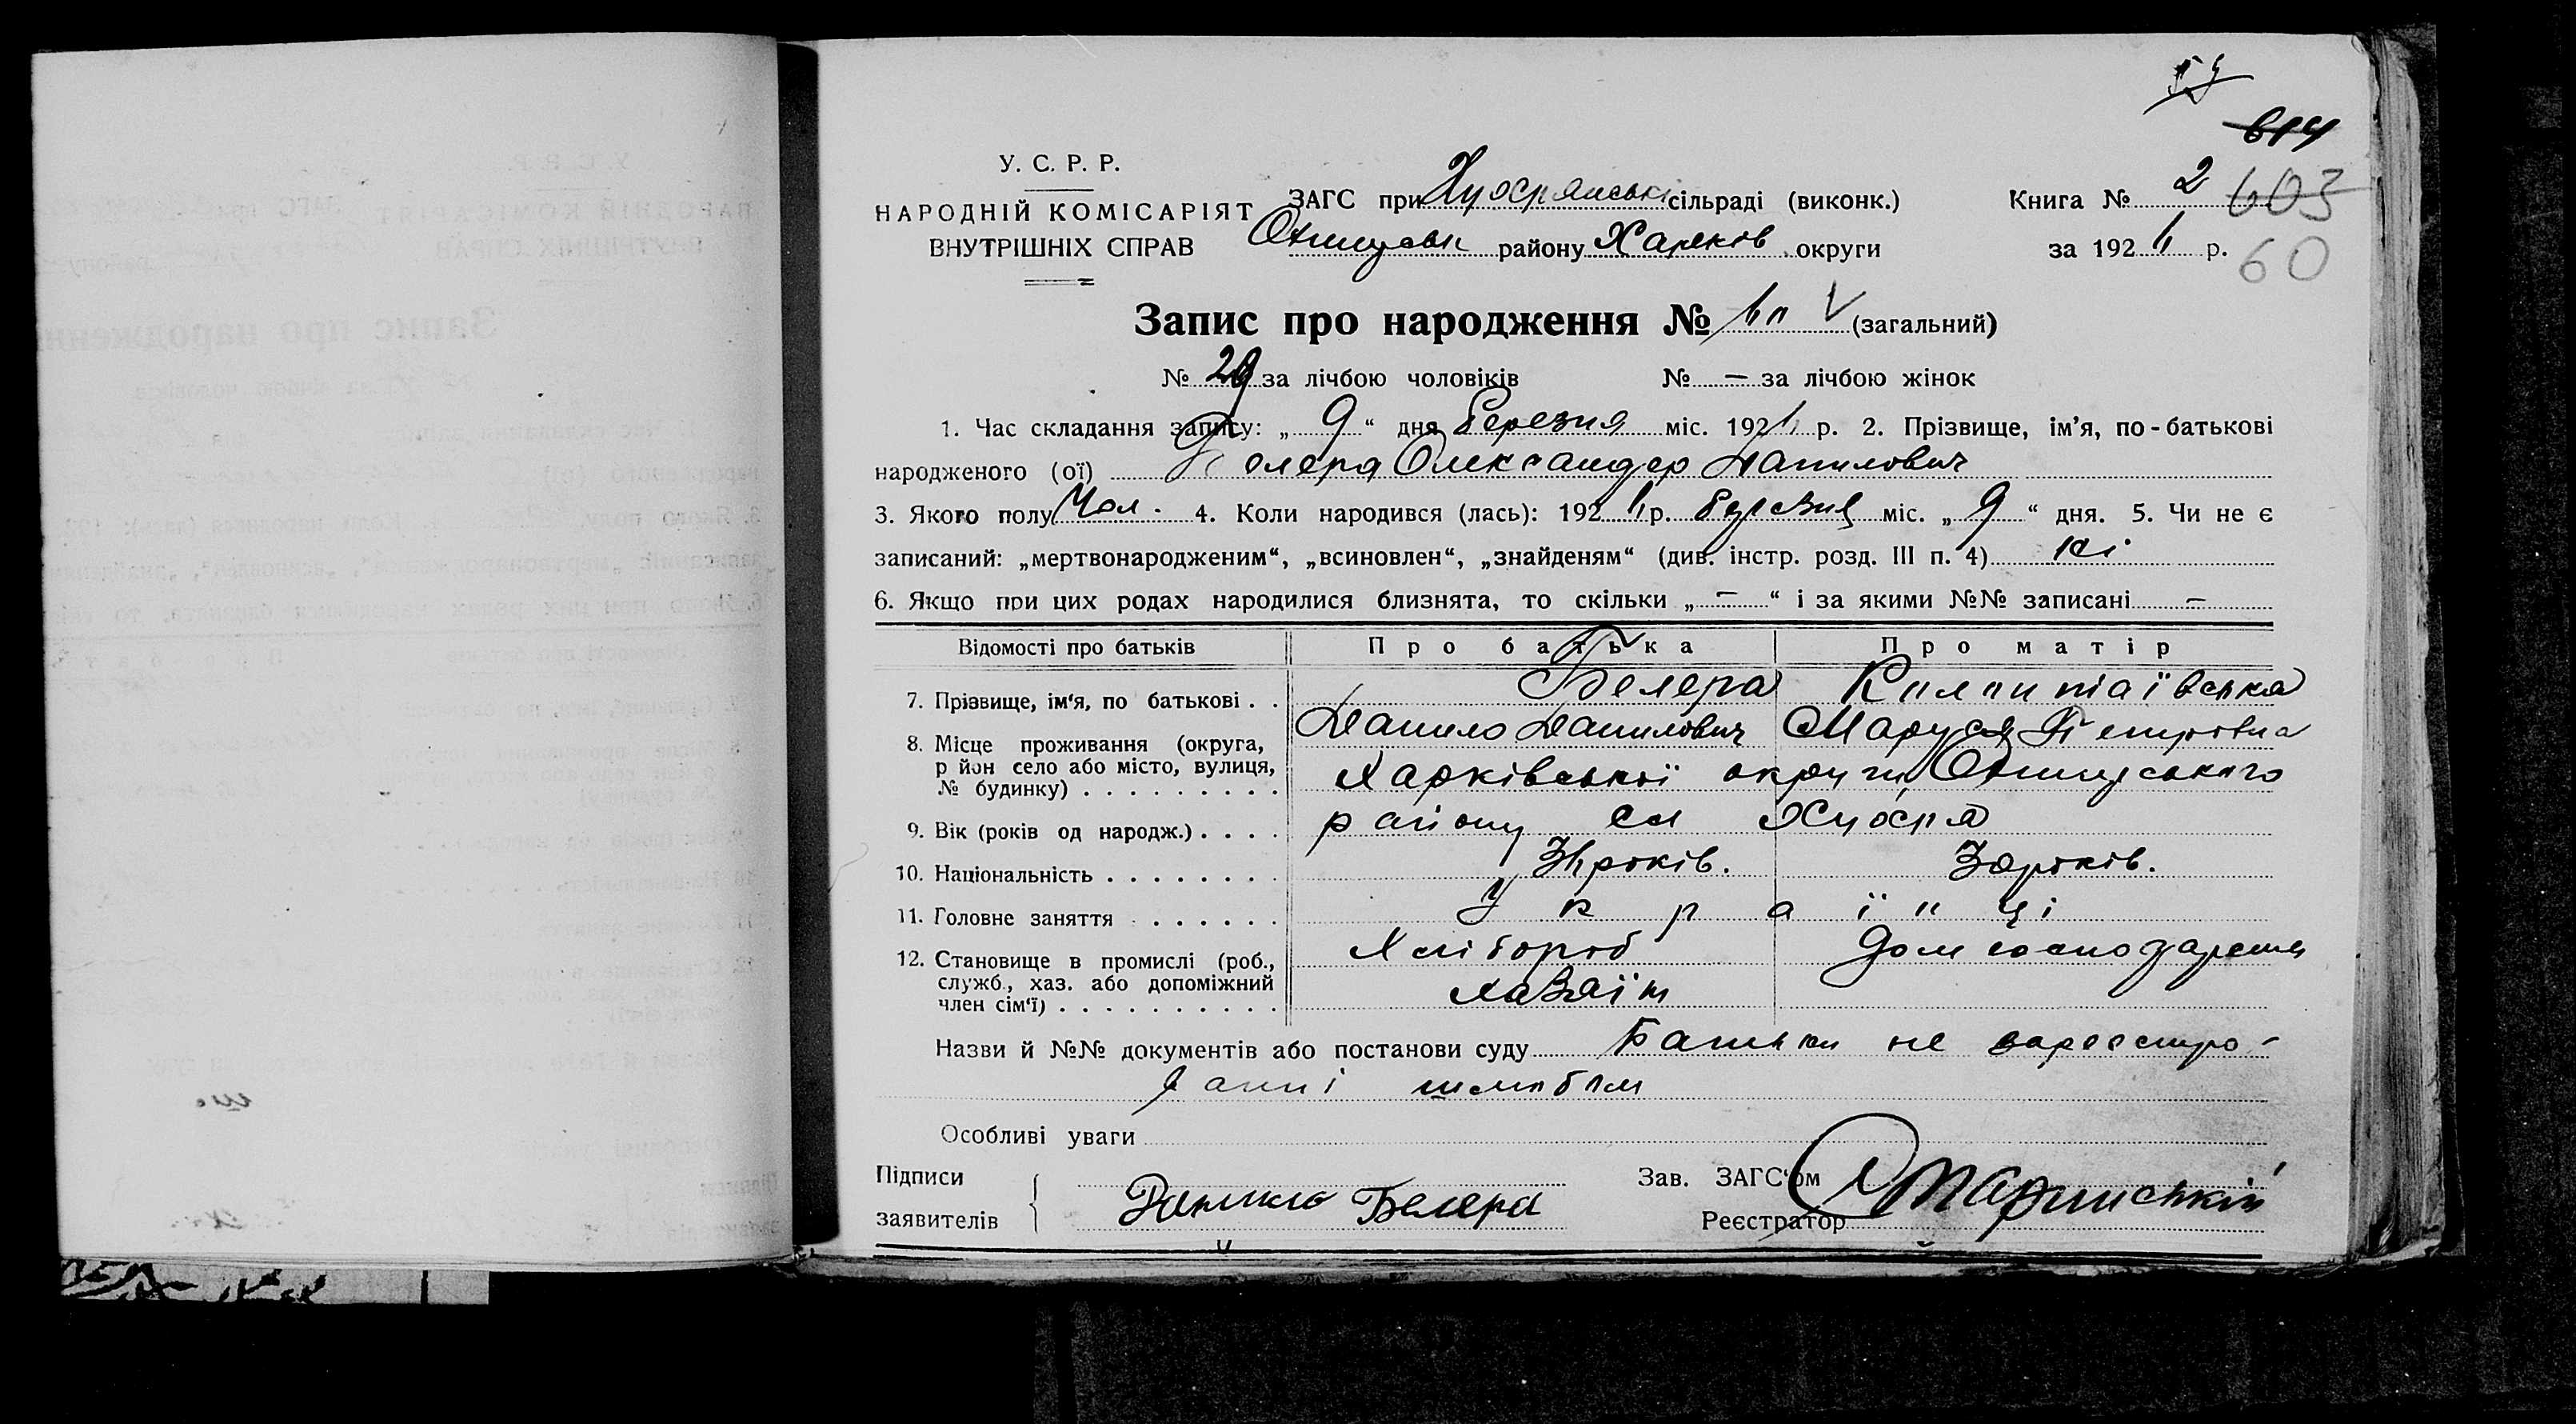 614
У. С. Р. Р.
НАРОДНІЙ КОМІСАРІЯТ
ВНУТРІШНІХ СПРАВ
ЗАГС при сільраді (виконк.)
району Харків округи
Книга № 2 603
за 192 р. 60
Запис про народження № (загальний)
№ 29 за лічбою чоловіків № — за лічбою жінок
1. Час складання запису: „ 9 “ дня Березня міс. 192 р. 2. Прізвище, ім’я, по-батькові
народженого (ої) Белера Олександер Данилович
3. Якого полу Чол. 4. Коли народився (лась): 192 р. Березня міс. „ 9 “ дня. 5. Чи не є
записаний: „мертвонародженим“, „всиновлен“, „знайденям“ (див. інстр. розд. III п. 4) ні
6. Якщо при цих родах народилися близнята, то скільки „ — “ і за якими №№ записані —
Відомості про батьків Про батька Про матір
7. Прізвище, ім‘я, по батькові . . Белера
Данило Данилович Маруся Петровна
8. Місце проживання (округа,
р йон село або місто, вулиця,
№ будинку) . . . . . . . . .
Харківської округи
району
9. Вік (років од народж.) . . . .
років. років.
10. Національність . . . . . . . .
Українці
11. Головне заняття . . . . . . .
Хлібороб Дом господарка
12. Становище в промислі (роб.,
служб., хаз. або допоміжний
член сім‘ї) . . . . . . . . . .
хазяїн
Назви й №№ документів або постанови суду Батьки не зареєстро-
ванні шлюбом
Особливі уваги
Підписи
заявителів
Данило Белера
Зав. ЗАГС‘ом
Реєстратор